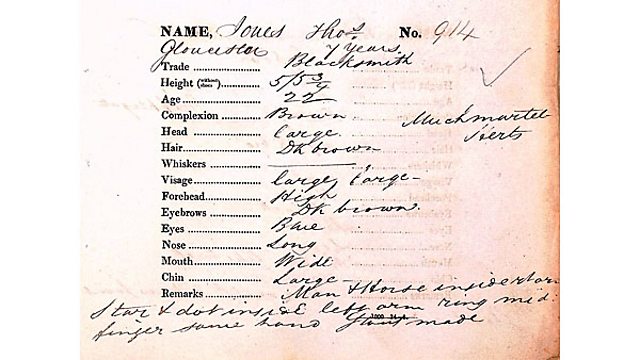 NAME, Jones Thos. No. 914
Gloucester 7 Years.
Trade Blacksmith
Height (without shoes) 5/5 3/4
Age 22
Complexion Brown Much martel
Head large. Herts
Hair Dk brown
Whiskers
Visage large, large
Forehead High
Eyebrows Dk brown.
Eyes Blue
Nose Long
Mouth Wide
Chin Large
Remarks Man & Horse inside
Star & dot inside left arm ring mid:
finger same hand Stout made